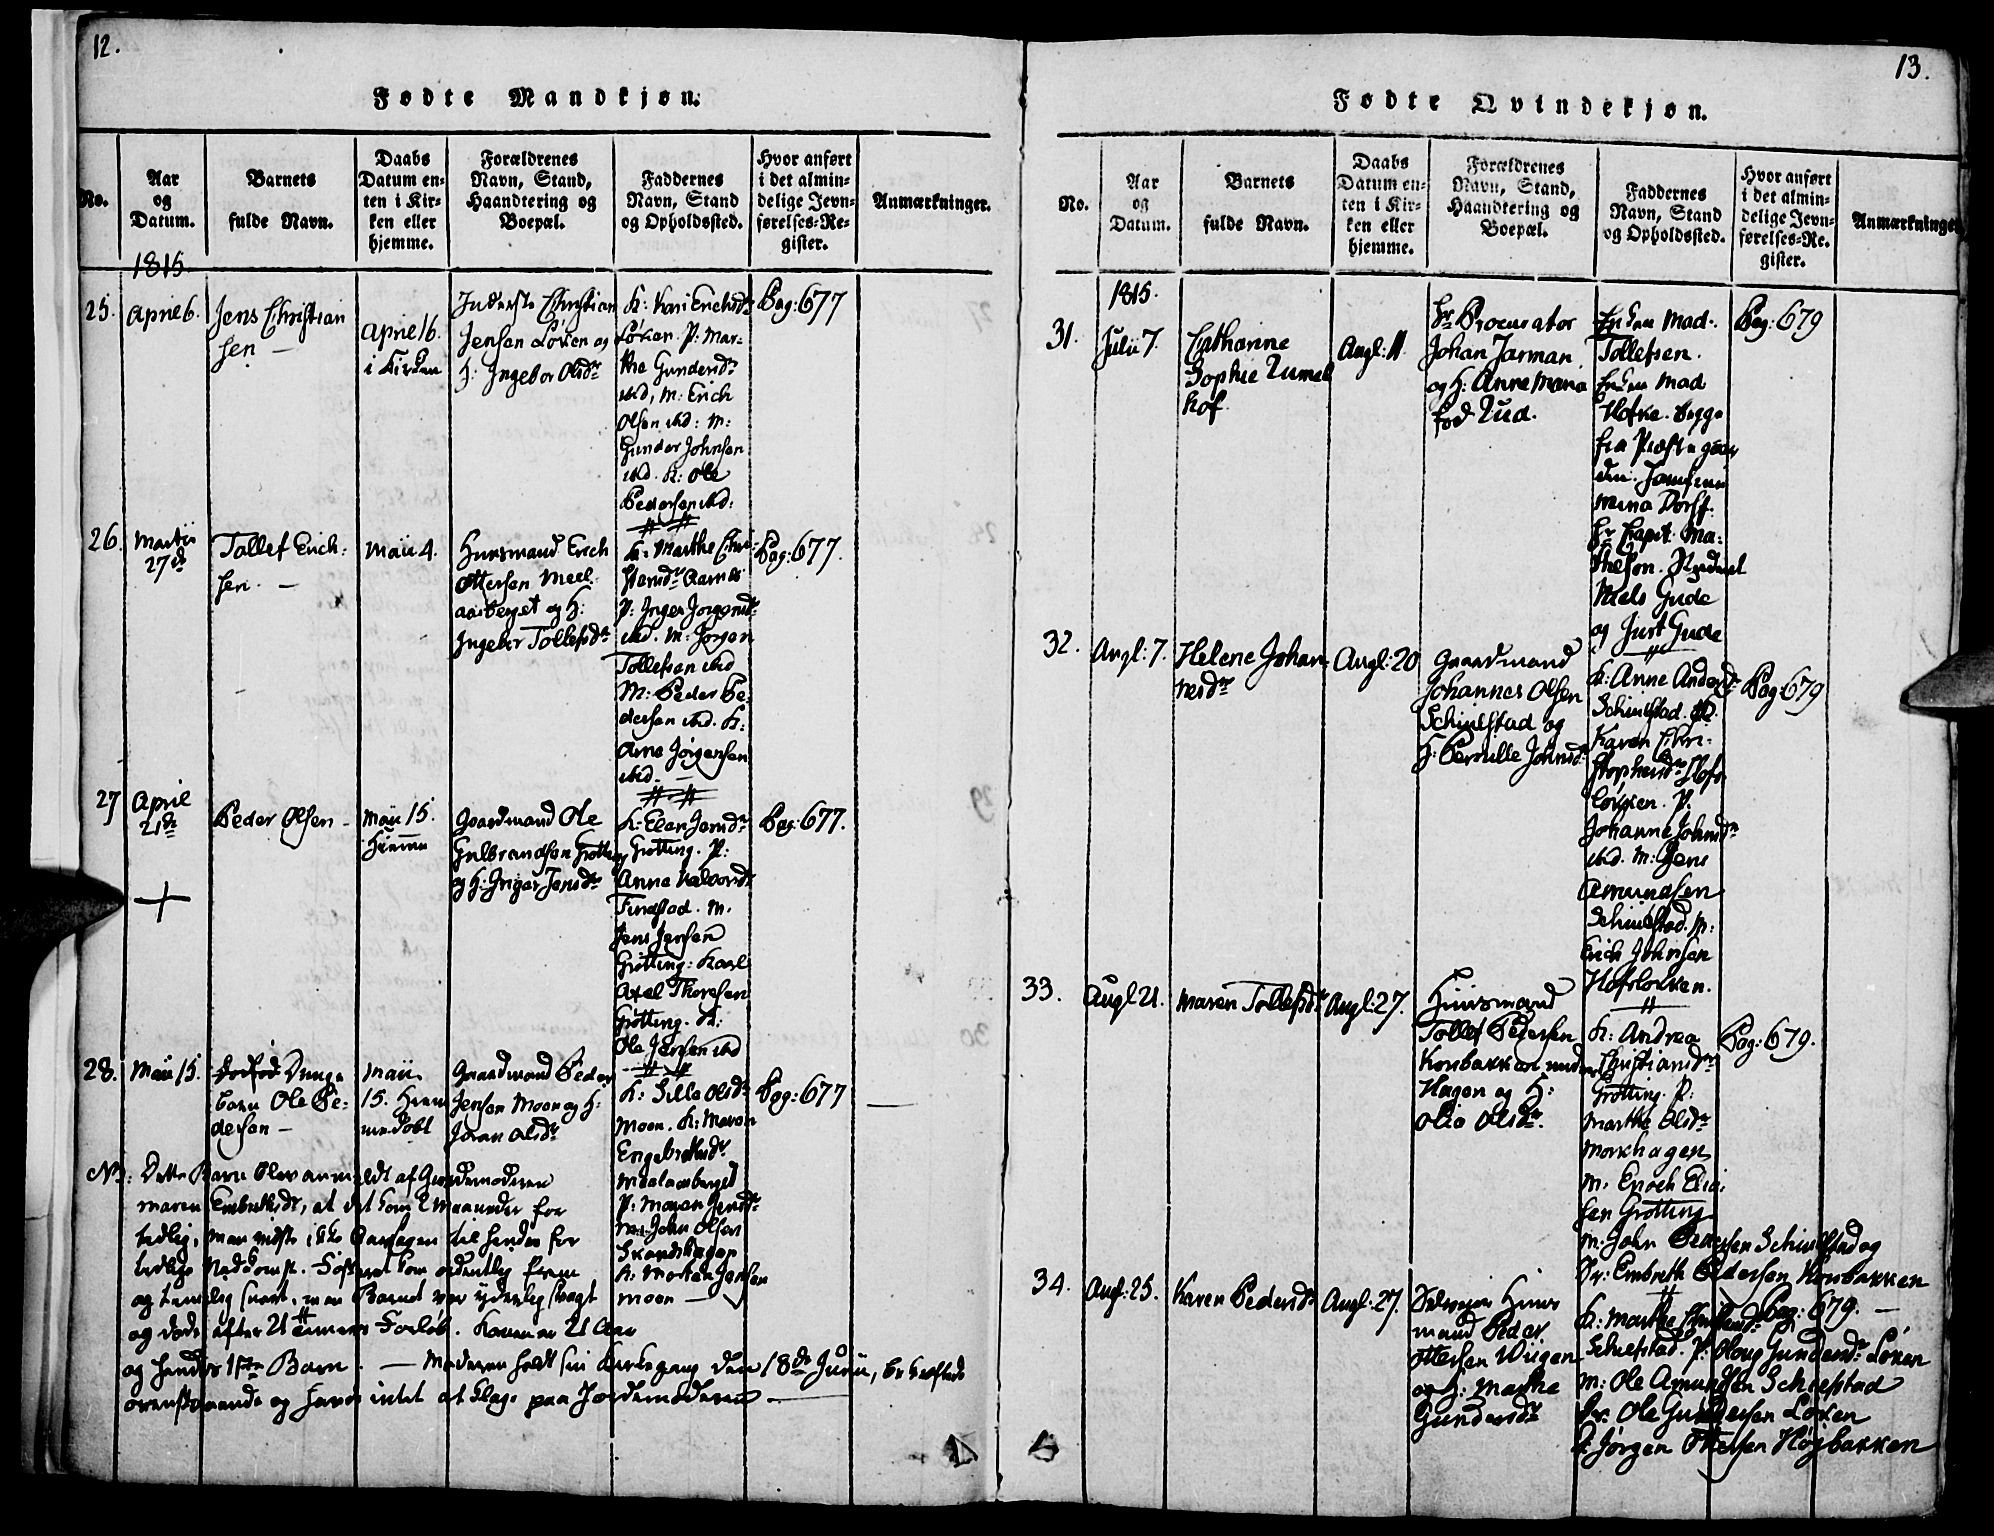 12.
Fødte Mandkjøn.
No.
Aar
og
Datum.
Barnets
fulde Navn.
Daabs
Datum en-
ten i Kir-
ken eller
hjemme.
Forældrenes
Navn, Stand,
Haandtering og
Boepæl.
Faddernes
Navn, Stand
og Opholdssted.
Hvor anført
i det almin-
delige Jevn-
førelses-Re-
gister.
Anmærkninger.
1815
25.
April 6.
Jens Christian
sen —
April 16.
i Kirken
Inderste Christian
Jensen Løken og
H: Ingebor Olsdr
K: Kari Erichsdr
Løken. P: Mar-
the Gundersdr
ibd, M: Erich
Olsen ibd: M:
Gunder Johnsen
ibd. K: Ole
Pedersen ibd:
Pag: 677
26.
Martii
27de
Tollef Erich-
sen. —
Maii 4.
Huusmand Erich
Ottersen Meel-
aasberget og H:
Ingebor Tollefsdr
K: Marthe Chri-
stensdr Aarnes
P: Inger Jorgensdr
ibd. M: Jørgen
Tollefsen ibd
M: Peder Pe-
dersen ibd. K:
Arne Jørgensen
ibd. —
Pag: 677.
27
April
21de
Peder Olsen —
Maii 15.
Hiemme
Gaardmand Ole
Gulbrandsen Grøtting
og H: Inger Jensdr
K: Elen Jensdr
Grøtting. P:
Anne Halvorsdr
Finstad. M.
Jens Jensen
Grøtting: Karl
Axel Thoresen
Grøtting. K:
Ole Jensen ibd
Pag: 677.
28.
Maii 15.
Dødfød Drenge
barn Ole Pe-
dersen —
Maii
15. Hiem
medøbt
Gaardmand Peder
Jensen Moen og H:
Joran Olsdr
K: Sille Olsdr
Moen. K: Maren
Engebrethsdr
Medalaasberget
P: Maren Jensdr
M: John Olsen
Strandskagen
K: Morten Jensen
Moen —
Pag: 677
NB: Dette Barn blev anmeldt af Giordemoderen
Maren Embrethsdr, at det kom 2 Maaneder for
tidlig, man vidste ikke Aarsagen til hendes for
tidlige Nedkomst. Fosteret kom ordentlig frem
og temmelig snart. men Barnet var yderlig svagt
og døde efter 2 Timers Forløb. Konen er 21 Aar
og hendes 1ste Barn. — Moderen holdt sin Kirkegang den 18de Junii, bekræftede
ovenstaaende og havde intet at klage paa Jordemoderen —
13.
Fødte Qvindekjøn.
No.
Aar
og
Datum.
Barnets
fulde Navn.
Daabs
Datum en-
ten i Kir-
ken eller
hjemme.
Forældrenes
Navn, Stand,
Haandtering og
Boepæl.
Faddernes
Navn, Stand
og Opholdssted.
Hvor anført
i det almin-
delige Jevn-
førelses-Re-
gister.
Anmærkninger
1815.
31.
Julii 7.
Catharine
Sophie Tumel
hof.
Augl: 11.
Hr Procurator
Johan Jarman
og H: Anne Maria
fød Lud.
Enken Mad.
Tollefsen.
Enken Mad
Hofve. begge
fra Præstegaar
den. Jomfrue
Mina Dorff.
Hr Capit. Ma-
thesen.
Niels Gude
og Just Gude
Pag: 679
32.
Augl: 7.
Helene Johan-
nesdr
Augl: 20
Gaardmand
Johannes Olsen
Schiulstad og
H: Pernille Johnsdr
K: Anne Andersdr
Schiulstad. P.
Karen Chri-
stophersdr Hofs
løkken. P.
Johanne Johnsdr
ibd. M: Jens
Amundsen
Schiulstad. M:
Erich Johnsen
Hofsløkken.
Pag: 679
33.
Augl 21.
Maren Tollefsdr
Augl: 27.
Huusmand
Tollef Pedersen
Korsbakken under
Hagen og H:
Olia Olsdr.
K: Andrea
Christiansdr
Grøtting. P:
Marthe Olsdr
Morkhagen
M: Enoch Elia-
sen Grøtting
M: John Pedersen Schiulstad og
Dr: Embreth Pedersen Korsbakken
Pag: 679.
34.
Augl: 25.
Karen Pedersdr
Augl: 27.
Selveyer Huus
mand Peder
Ottersen Viigen
og H: Marthe
Gundersdr
K: Marthe Christensdr
Schiefstad. P: Oloug Gundersdr Løken
M: Ole Amundsen Schiefstad
Dr: Ole Gundersen Løken
K: Jørgen Ottersen Højbakken
Pag: 679. —